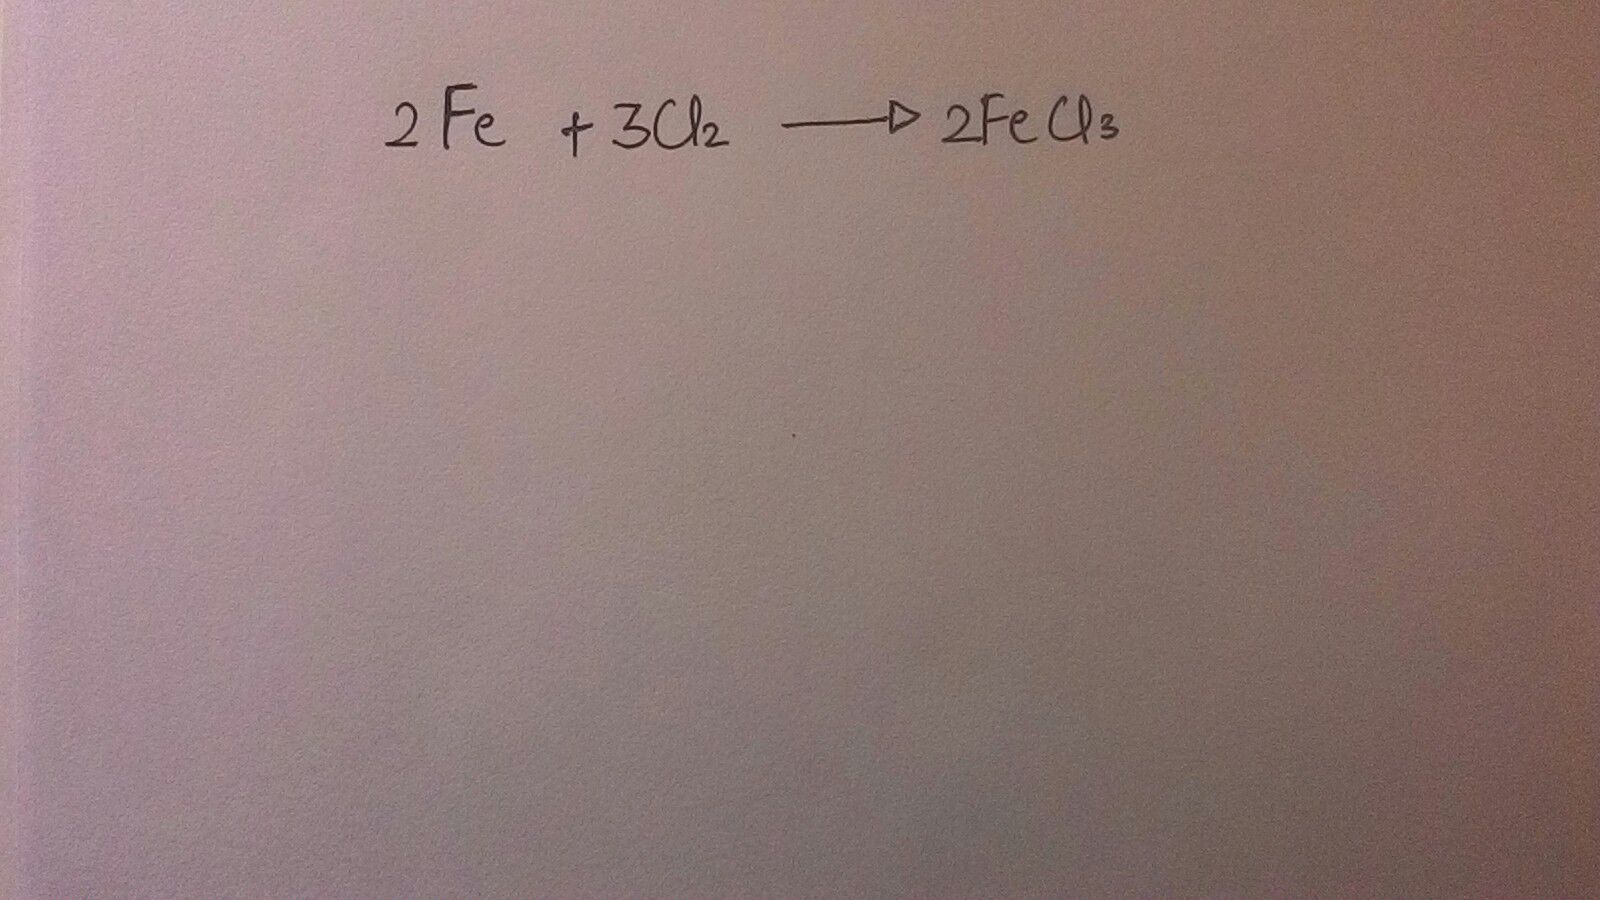 2Fe + 3Cl₂ → 2FeCl₃